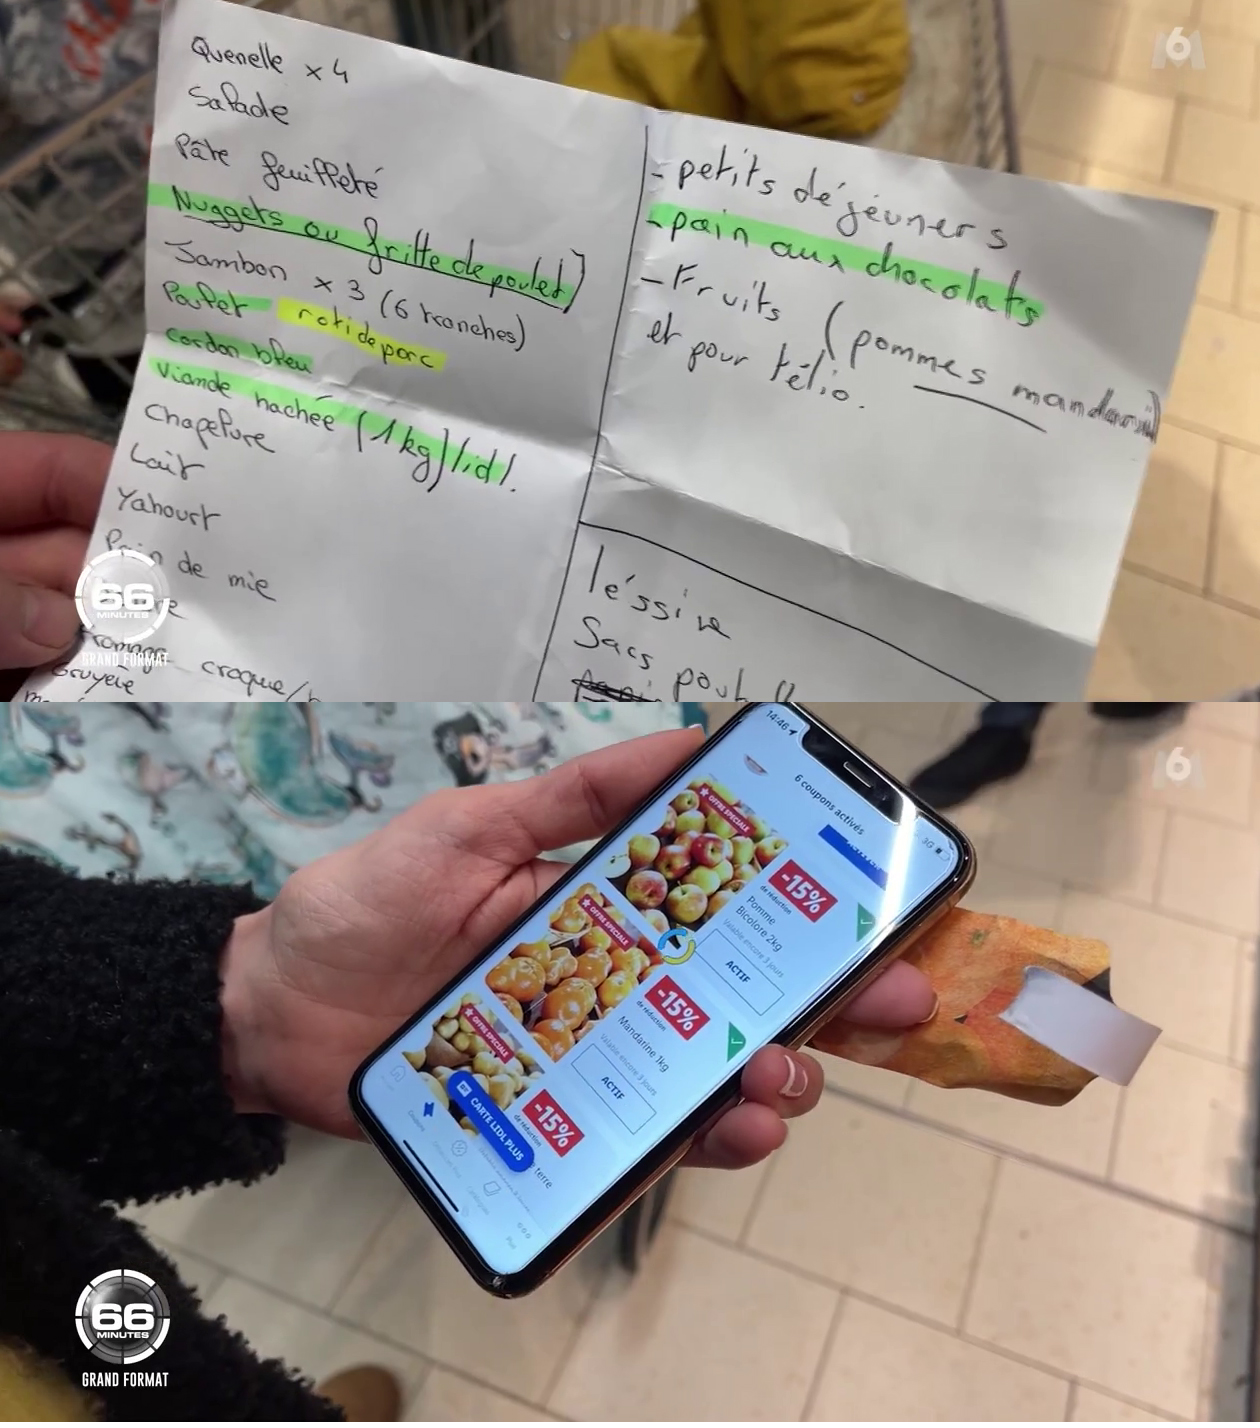 Quenelle x 4
Salade
Pâte feuilleté
Nuggets ou fritte de poulet)
Jambon x 3 (6 tranches)
Poulet roti de porc
Cordon bleu
Viande hachée (1kg) lidl.
Chapelure
Lait
Yahourt
Pain de mie
Fromage croque/
Gruyère
- petits déjeuners
- pain aux chocolats
- Fruits (pommes
et pour télio.
léssive
Sacs
M6
66
MINUTES
GRAND FORMAT
14:46
3G
6 coupons activés
OFFRE SPECIALE
-15%
de réduction
Pomme
Bicolore 2kg
Valable encore 3 jours
ACTIF
OFFRE SPECIALE
-15%
de réduction
Mandarine 1kg
Valable encore 3 jours
ACTIF
OFFRE SPECIALE
-15%
de réduction
terre
CARTE LIDL PLUS
Coupons
Plus
M6
66
MINUTES
GRAND FORMAT